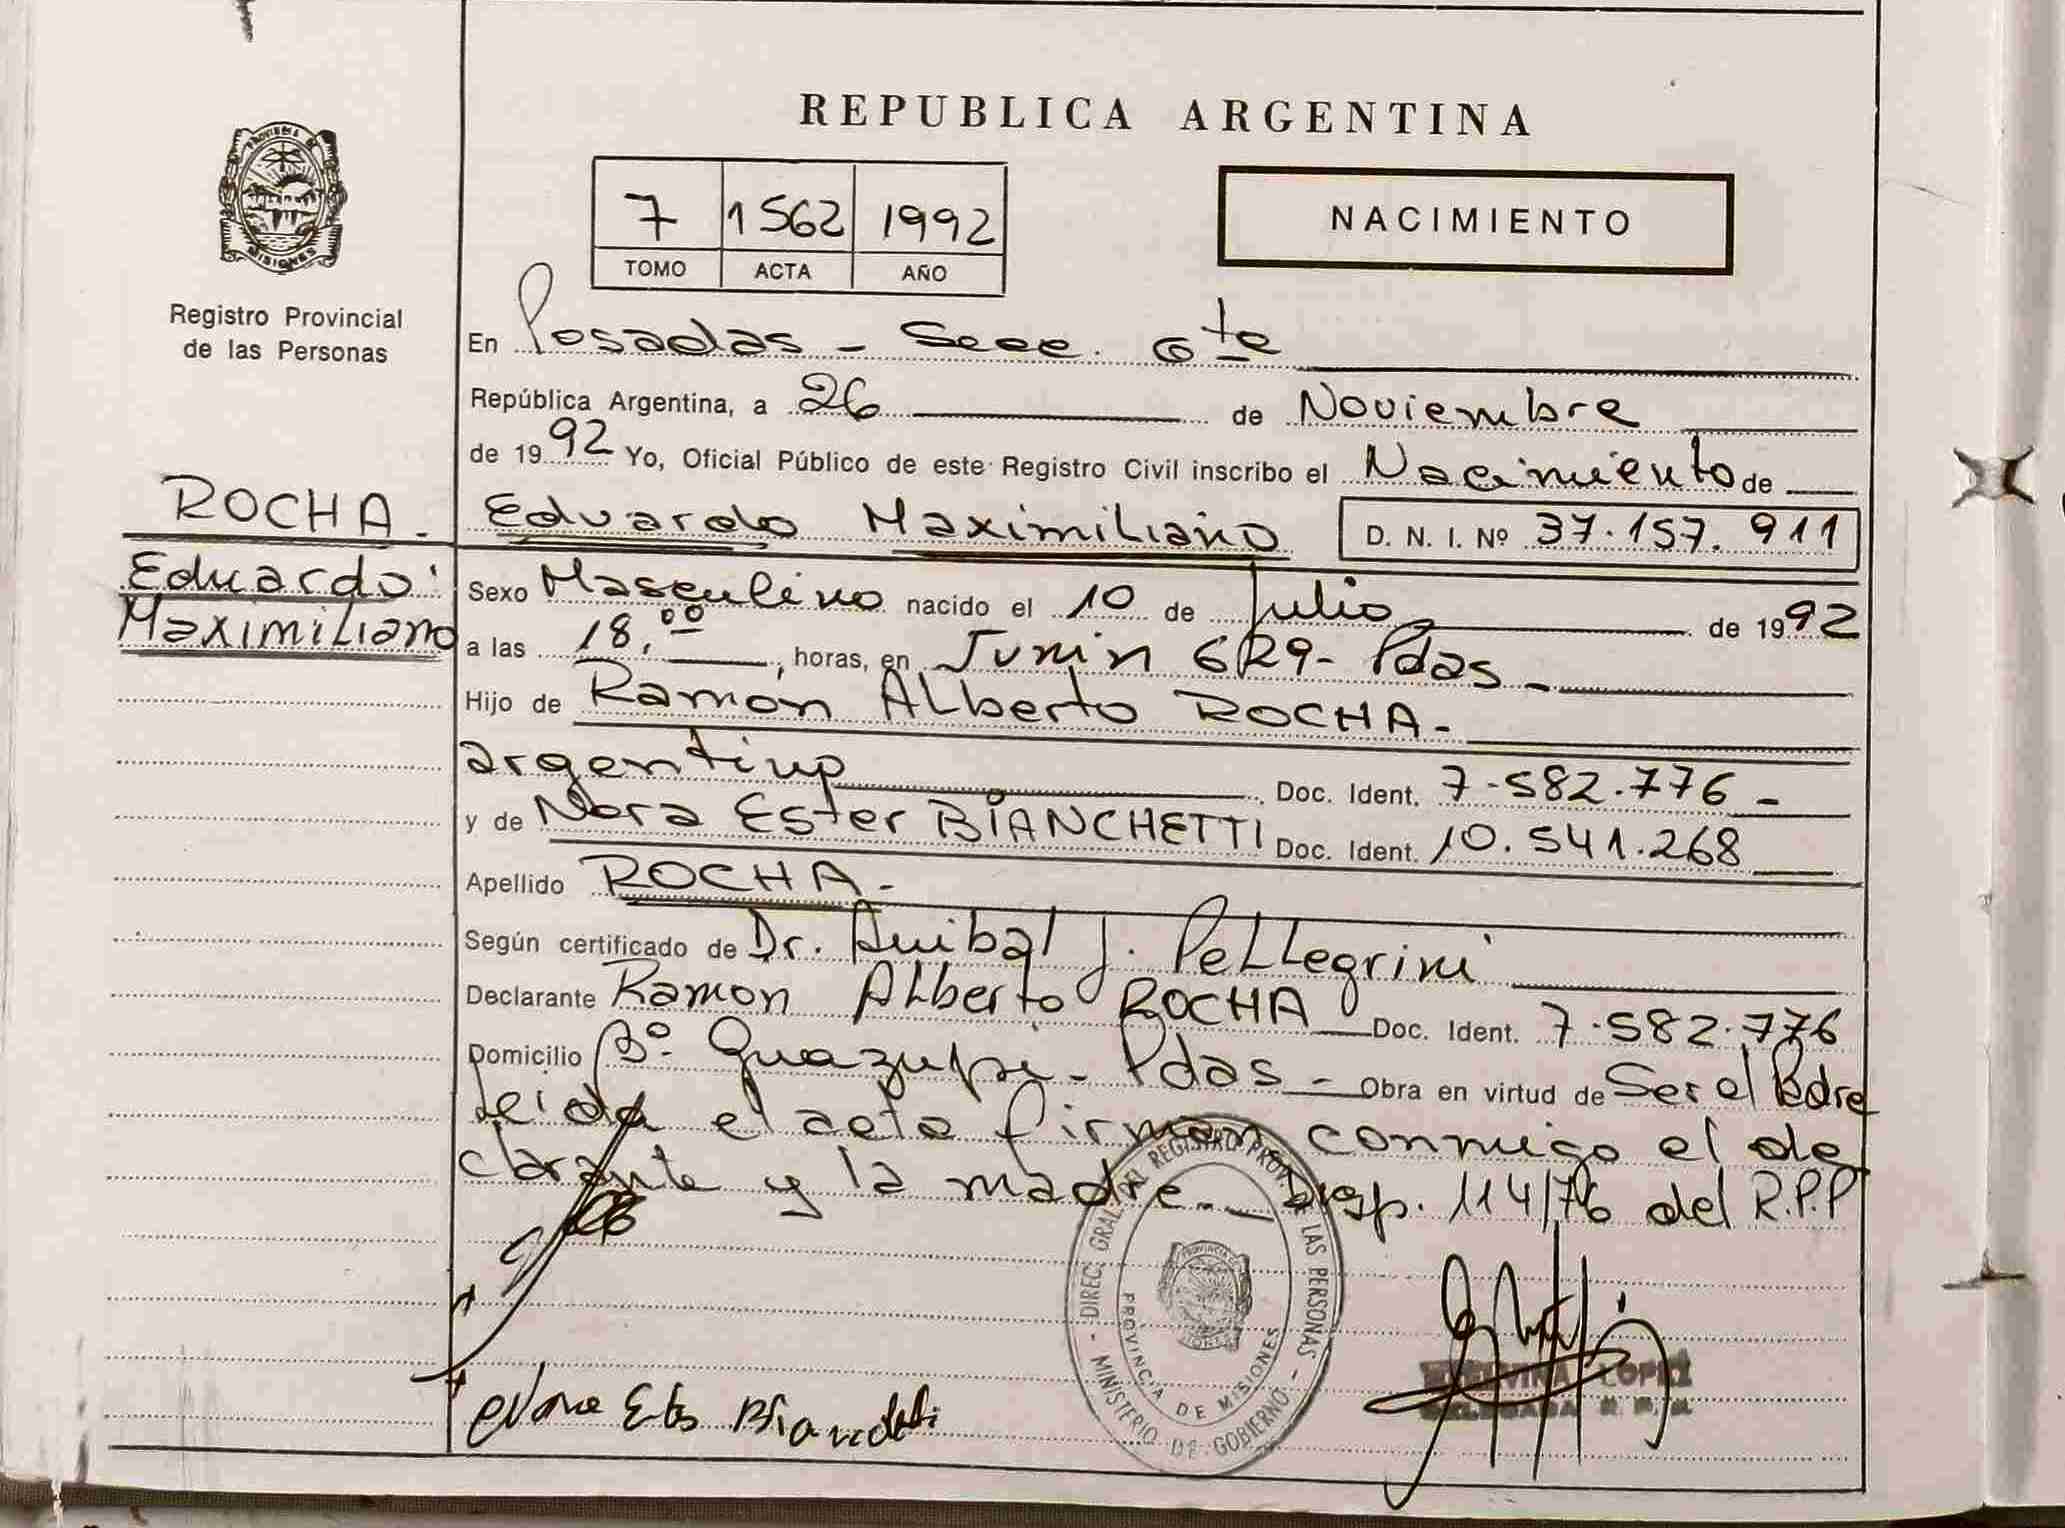 REPUBLICA ARGENTINA
PROVINCIA DE
MISIONES
Registro Provincial
de las Personas
7 1562 1992
TOMO ACTA AÑO
NACIMIENTO
En Posadas - Secc. 6ta
República Argentina, a 26 de Noviembre
de 1992 Yo, Oficial Público de este Registro Civil inscribo el Nacimiento de
ROCHA.
Eduardo
Maximiliano
Eduardo Maximiliano D. N. I. Nº 37.157.911
Sexo Masculino nacido el 10 de Julio de 1992
a las 18,00 horas, en Junin 629 - Pdas -
Hijo de Ramón Alberto ROCHA -
argentino Doc. Ident. 7.582.776 -
y de Nora Ester BIANCHETTI Doc. Ident. 10.541.268
Apellido ROCHA -
Según certificado de Dr. Anibal J. Pellegrini
Declarante Ramon Alberto ROCHA Doc. Ident. 7.582.776
Domicilio Bº Guazupi - Pdas - Obra en virtud de Ser el Padre
Leida el acta firman conmigo el de
clarante y la madre. - Disp. 114/76 del R.P.P
DIREC. GRAL. DEL REGISTRO PROV. DE LAS PERSONAS
PROVINCIA DE MISIONES
- MINISTERIO DE GOBIERNO -
LOPEZ
DELEGADA R. P. P.